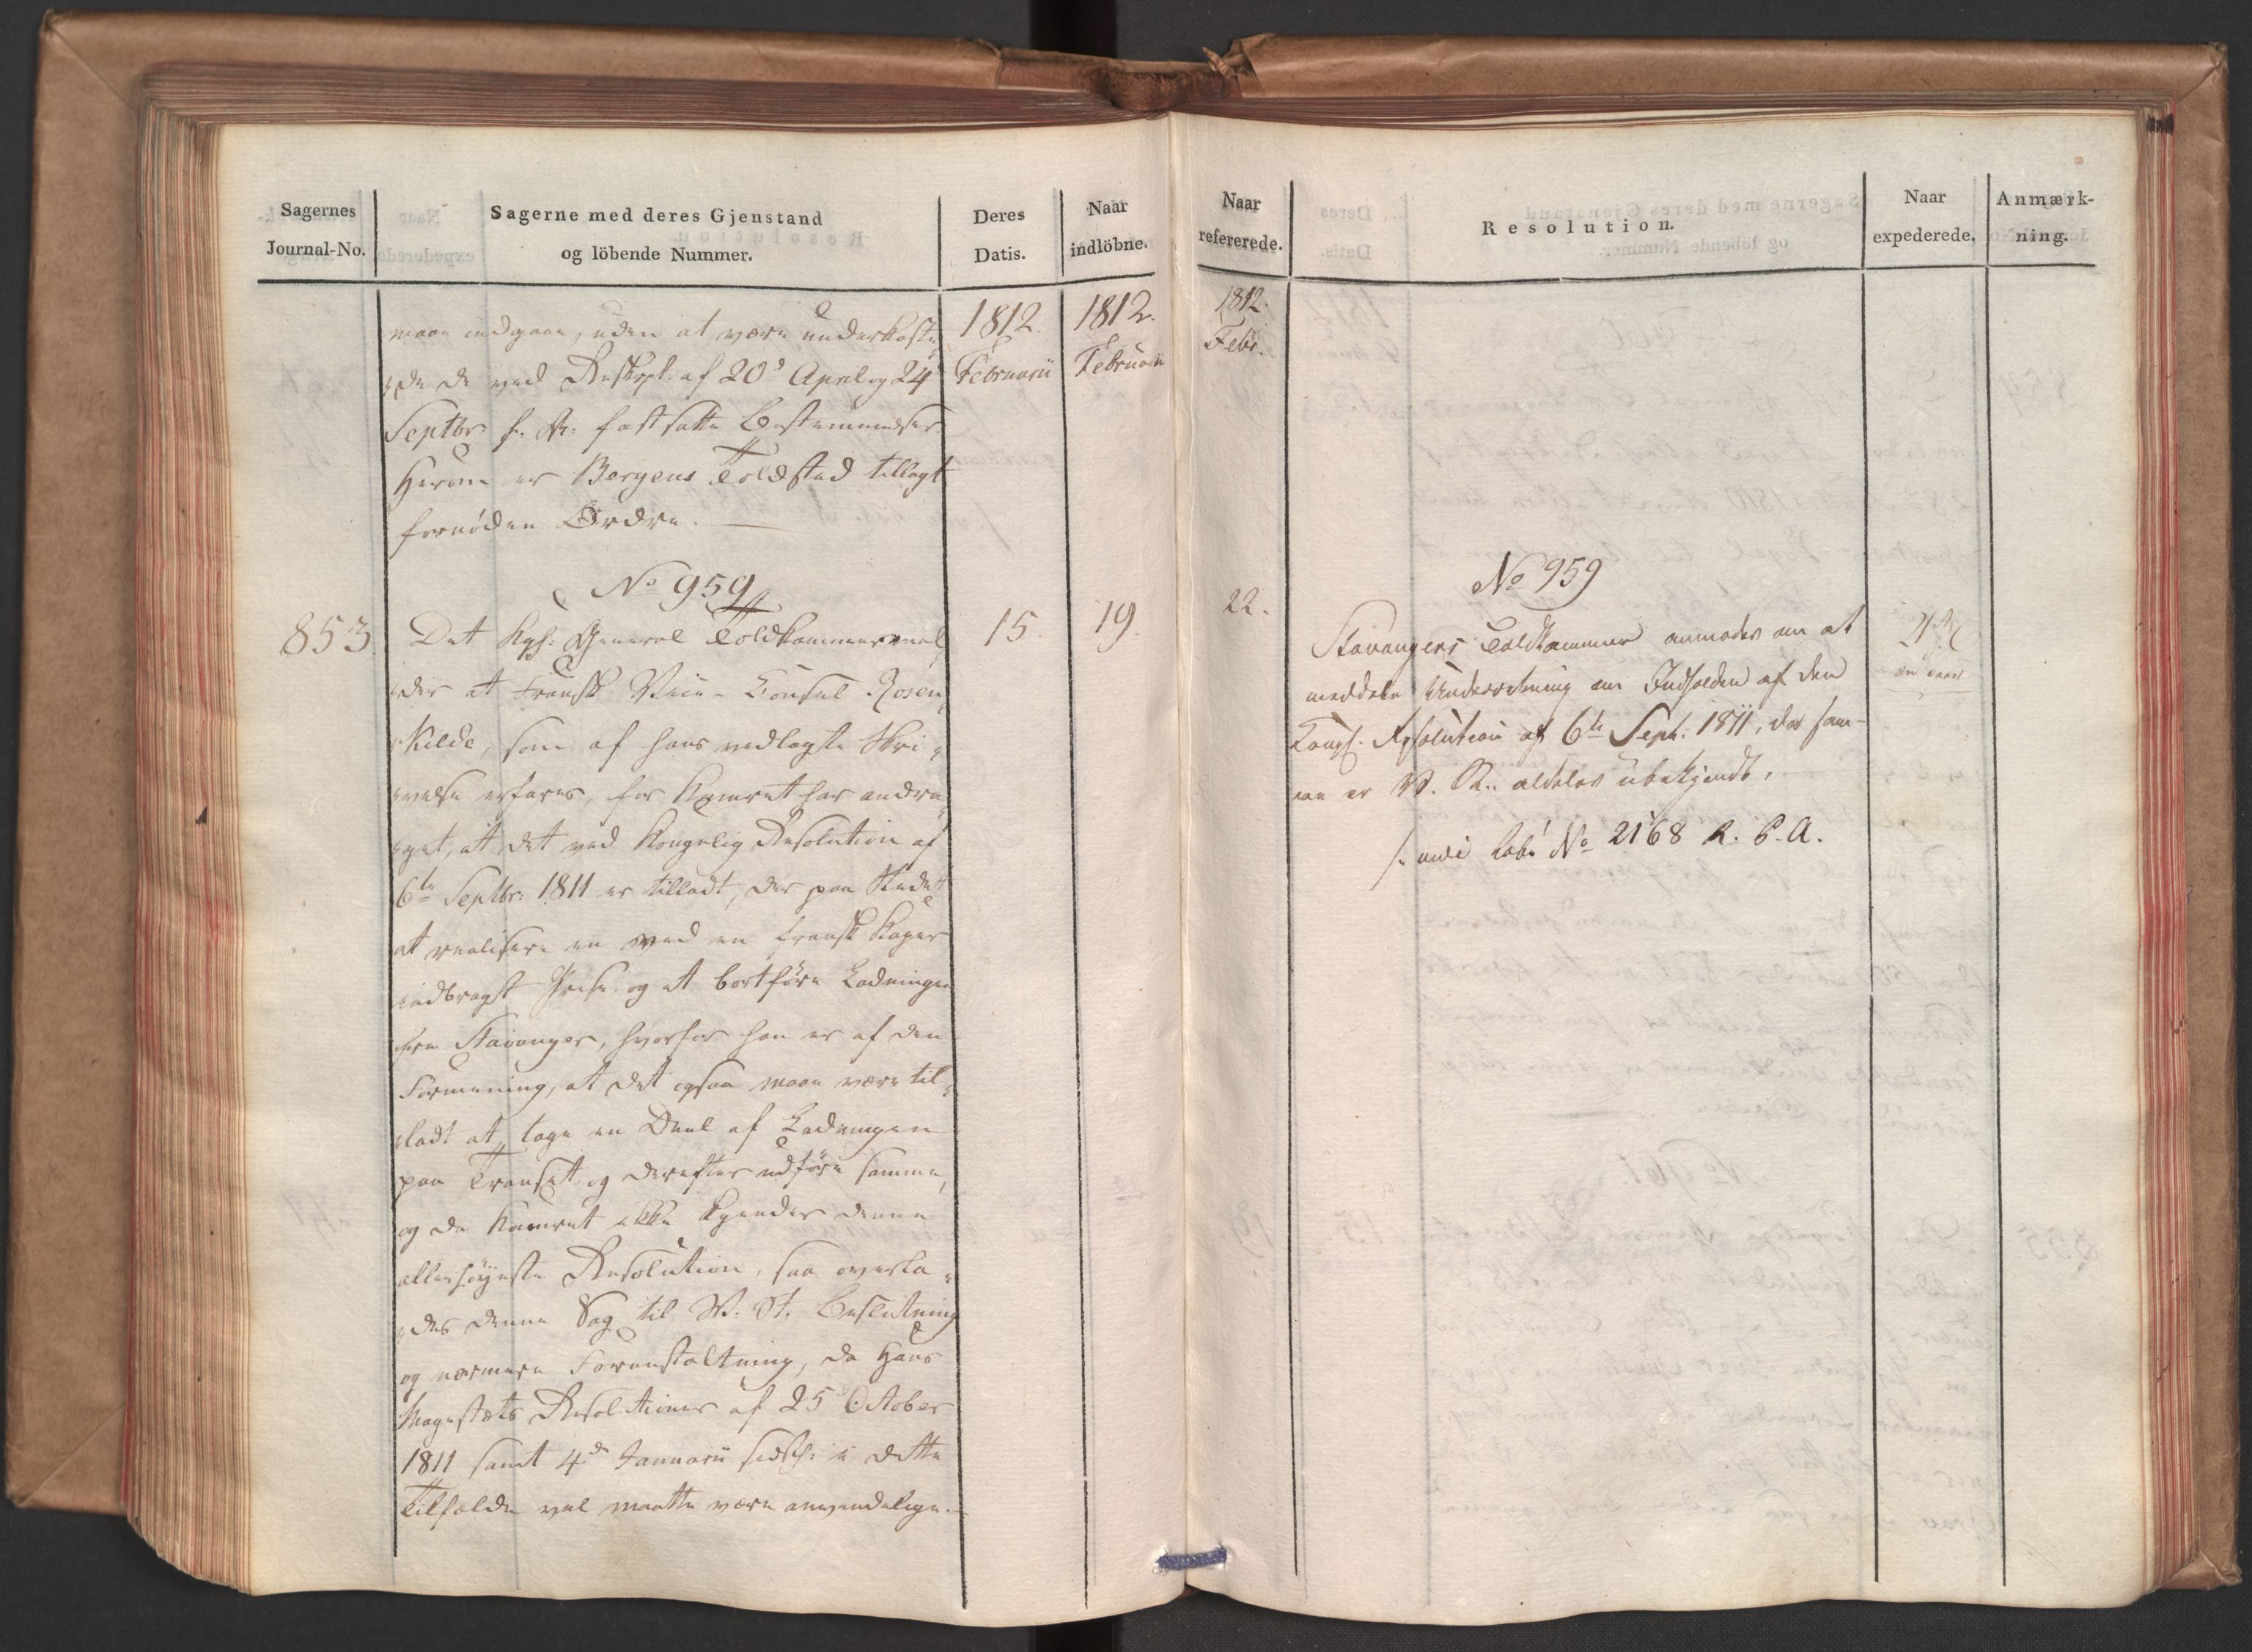 Sagernes
Journal-No.
Sagerne med deres Gjenstand
og löbende Nummer.
Deres
Datis.
Naar
indlöbne.
1812.
Februarii
1812.
Februarii
maae indgaae, uden at være underkaste-
de de ved Reskrpt. af 20de April og 24
Septbr. f. A. fastsatte Bestemmelser.
Herom er Bergens Toldsted tillagt
fornöden Ordre.
No 959
853.
15.
19.
Det Kgl. General Toldkammer
der at Fransk Vice-Consul Rosen
kilde, som af hans vedlagte Skri-
velse erfares, for Kamret har andra-
get, at det ved Kongelig Resolution af
6te Septbr. 1811 er tilladt, der paa Stedet
at realisere en ved en fransk Kaper
indbragt Prise og at bortföre Ladningen
fra Stavanger, hvorfor han er af den
Formening, at det ogsaa maae være til-
ladt at tage en Deel af Ladningen
paa Transit og derefter udföre samme,
og da Kamret ikke kjender denne
allerhöyeste Resolution, saa overla-
des denne Sag til Beslutning
og nærmere Foranstaltning, da Hans
Majestæts Resolutioner af 25 October
1811 samt 4de Januarii sidstl. i dette
Tilfælde vel maatte være anvendelige.
Naar
refererede.
Resolution.
Naar
expederede.
Anmærk-
ning.
1812.
Febr.
22.
No 959
Stavangers Toldkammer anmodes om at
meddele Underretning om Indholden af den
Kongl. Resolution af 6te Sept. 1811, da sam-
me er R. aldeles ubekjendt.
No 2168 R. C. A.